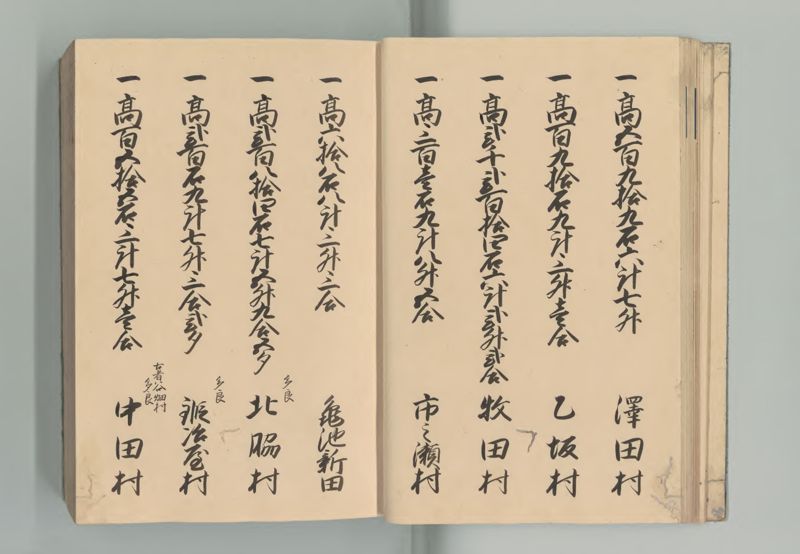 一高五百九拾九石六斗七升 澤田村
一高百九拾石九斗三升壱合 乙坂村
一高弐千弐百拾四石六斗弐升弐合 牧田村
一高三百壱石九斗八升五合 市之瀬村
一高六拾八石八斗三升三合 亀池新田
一高弐百八拾四石七斗五升九合五夕 多良 北脇村
一高弐百石九斗七升三合弐夕 多良 鍛冶屋村
一高百五拾五石三斗七升壱合 古者谷畑村 多良 中田村